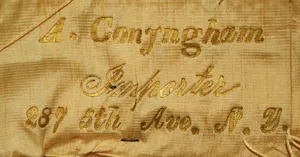 A. Conyngham
Importer
287 5th Ave. N.Y.